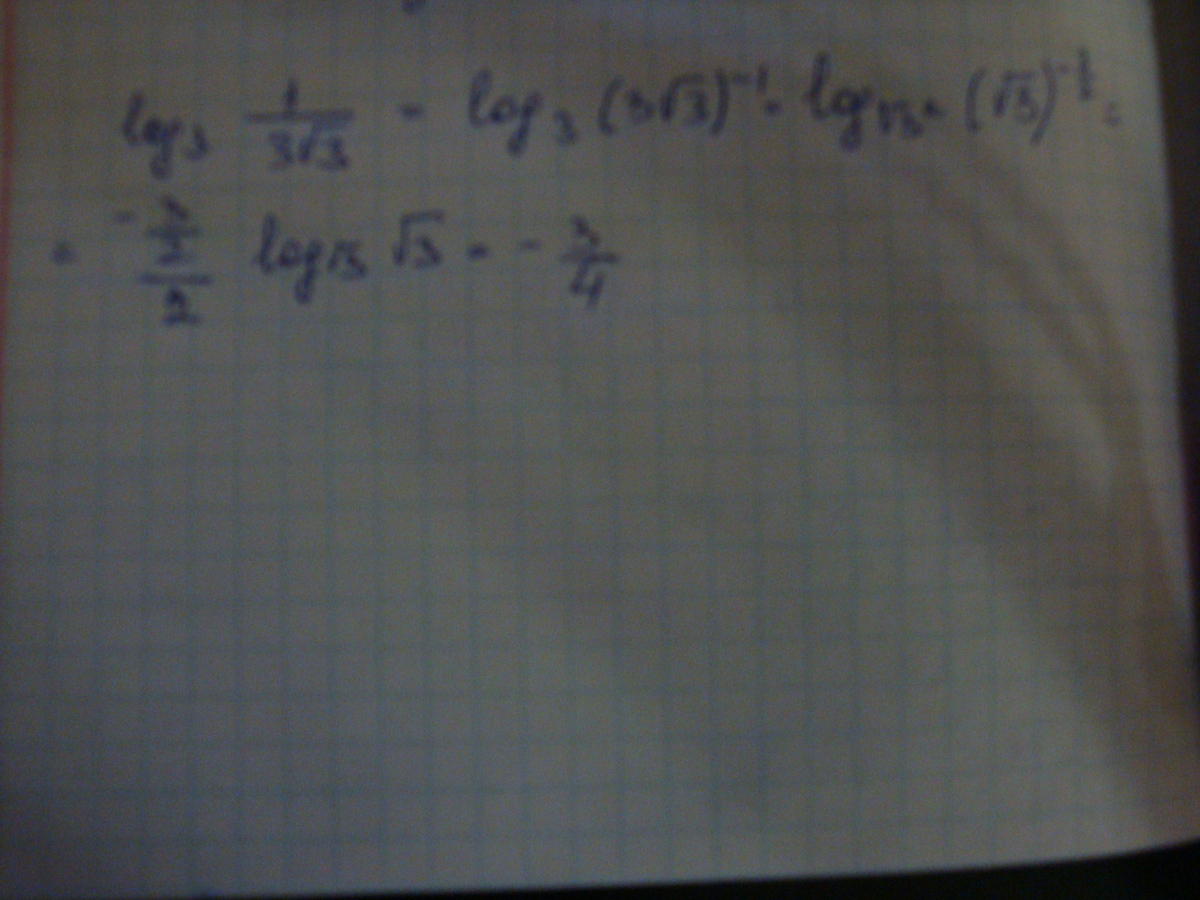 log₃ 1/(3√3) = log₃ (3√3)⁻¹ = log_{√3²} (√3)
= (-3/2)/2 log_{√3} √3 = -3/4